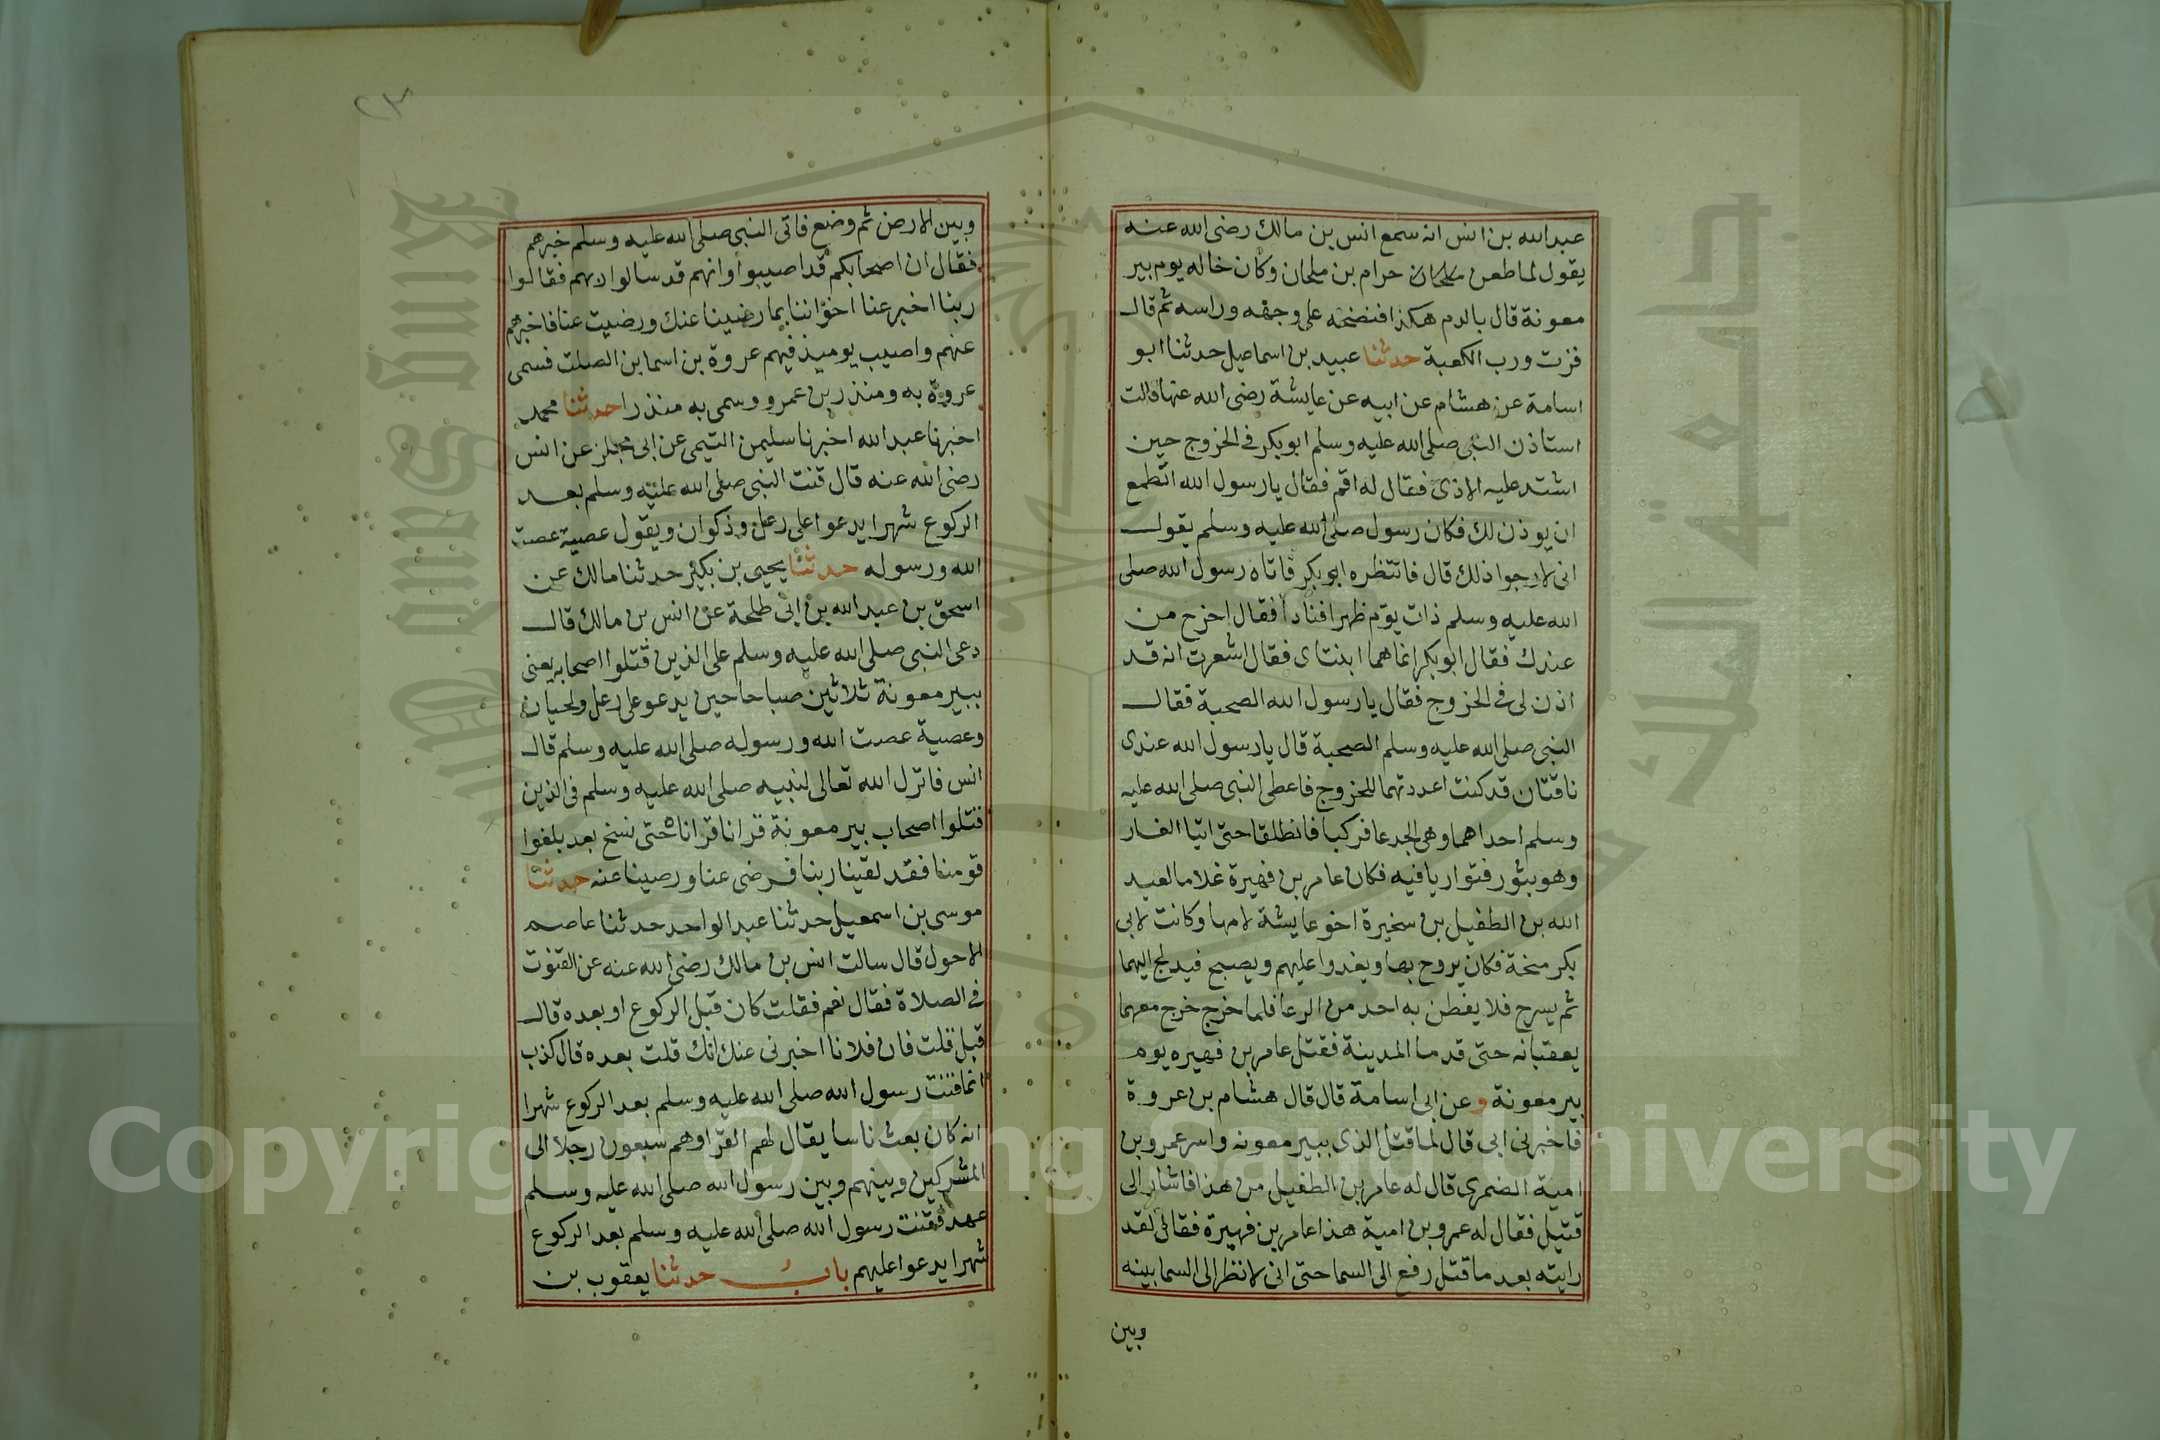 عبد الله بن انس انه سمع انس بن مالك رضى الله عنه
يقول لما طعن ملحان حرام بن ملحان وكان خاله يوم بير
معونة قال بالدم هكذا فنضحه على وجهه وراسه ثم قال
فزت ورب الكعبة حدثنا عبيد بن اسماعيل حدثنا ابو
اسامة عن هشام عن ابيه عن عايشة رضى الله عنها قالت
استاذن النبى صلى الله عليه وسلم ابو بكر فى الخروج حين
اشتد عليه الاذى فقال له اقم فقال يا رسول الله اتطمع
ان يوذن لك فكان رسول صلى الله عليه وسلم يقول
انى لارجوا ذلك قال فانتظره ابو بكر فاتاه رسول الله صلى
الله عليه وسلم ذات يوم ظهرا فنادا فقال اخرج من
عندك فقال ابو بكر انما هما ابنتاى فقال اشعرت انه قد
اذن لى فى الخروج فقال يا رسول الله الصحبة فقال
النبى صلى الله عليه وسلم الصحبة قال يا رسول الله عندى
ناقتان قد كنت اعددتهما للخروج فاعطى النبى صلى الله عليه
وسلم احداهما وهى الجدعا فركبا فانطلقا حتى اتيا الغار
وهو بثور فتواريا فيه فكان عامر بن فهيرة غلاما لعبد
الله بن الطفيل بن سخيرة اخو عايشة لامها وكانت لابى
بكر منحة فكان يروح بها ويغدوا عليهم ويصبح فيدلج اليهما
ثم يسرح فلا يفطن به احد من الرعا فلما خرج خرج معهما
يعقبانه حتى قدما المدينة فقتل عامر بن فهيره يوم
بير معونة وعن ابى اسامة قال قال هشام بن عروة
فاخبرنى ابى قال لما قتل الذى ببير معونه واسر عمرو بن
امية الضمرى قال له عامر بن الطفيل من هذا فاشار الى
قتيل فقال له عمرو بن امية هذا عامر بن فهيرة فقال لقد
رايته بعد ما قتل رفع الى السما حتى انى لانظر الى السما بينه
وبين
٢٣
وبين الارض ثم وضع فاتى النبى صلى الله عليه وسلم خبرهم
فقال ان اصحابكم قد اصيبوا وانهم قد سالوا ربهم فقالوا
ربنا اخبر عنا اخواننا بما رضينا عنك ورضيت عنا فاخبرهم
عنهم واصيب يوميذ فيهم عروة بن اسما بن الصلت فسمى
عروة به ومنذر بن عمرو وسمى به منذرا حدثنا محمد
اخبرنا عبد الله اخبرنا سليمن التيمى عن ابى مجلز عن انس
رضى الله عنه قال قنت النبى صلى الله عليه وسلم بعد
الركوع شهرا يدعوا على رعل وذكوان ويقول عصية عصت
الله ورسوله حدثنا يحيى بن بكير حدثنا مالك عن
اسحق بن عبد الله بن ابى طلحة عن انس بن مالك قال
دعى النبى صلى الله عليه وسلم على الذين قتلوا اصحابه يعنى
ببير معونة ثلاثين صباحا حين يدعو على رعل ولحيان
وعصية عصت الله ورسوله صلى الله عليه وسلم قال
انس فانزل الله تعالى لنبيه صلى الله عليه وسلم فى الذين
قتلوا اصحاب بير معونة قرانا قراناه حتى نسخ بعد بلغوا
قومنا فقد لقينا ربنا فرضى عنا ورضينا عنه حدثنا
موسى بن اسمعيل حدثنا عبد الواحد حدثنا عاصم
الاحول قال سالت انس بن مالك رضى الله عنه عن القنوت
فى الصلاة فقال نعم فقلت كان قبل الركوع او بعده قال
قبل قلت فان فلانا اخبرنى عنك انك قلت بعده قال كذب
انما قنت رسول الله صلى الله عليه وسلم بعد الركوع شهرا
انه كان بعث ناسا يقال لهم القرا وهم سبعون رجلا الى
المشركين وبينهم وبين رسول الله صلى الله عليه وسلم
عهد فقنت رسول الله صلى الله عليه وسلم بعد الركوع
شهرا يدعوا عليهم باب حدثنا يعقوب بن
King Saud University
جامعة الملك سعود
Copyright © King Saud University